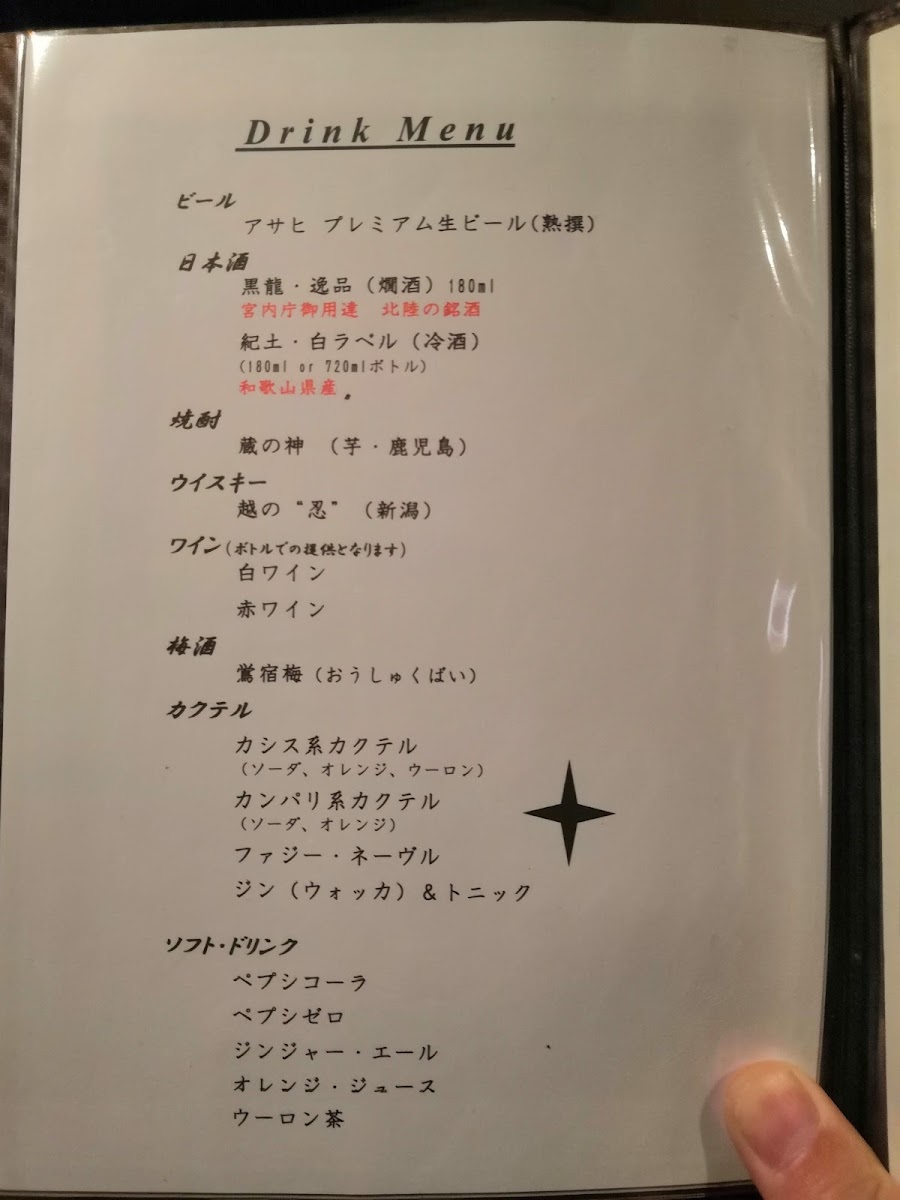 Drink Menu
ビール
アサヒ プレミアム生ビール(熟撰)
日本酒
黒龍・逸品(燗酒)180ml
宮内庁御用達 北陸の銘酒
紀土・白ラベル(冷酒)
(180ml or 720mlボトル)
和歌山県産
焼酎
蔵の神 (芋・鹿児島)
ウイスキー
越の“忍” (新潟)
ワイン(ボトルでの提供となります)
白ワイン
赤ワイン
梅酒
鶯宿梅(おうしゅくばい)
カクテル
カシス系カクテル
(ソーダ、オレンジ、ウーロン)
カンパリ系カクテル
(ソーダ、オレンジ)
ファジー・ネーヴル
ジン(ウォッカ)&トニック
ソフト・ドリンク
ペプシコーラ
ペプシゼロ
ジンジャー・エール
オレンジ・ジュース
ウーロン茶